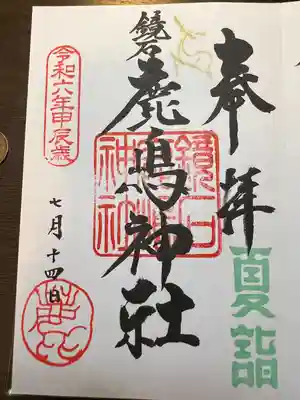 奉拝
夏詣
鏡石
鹿嶋神社
鏡石
鹿嶋
神社
令和六年甲辰歳
七月十四日